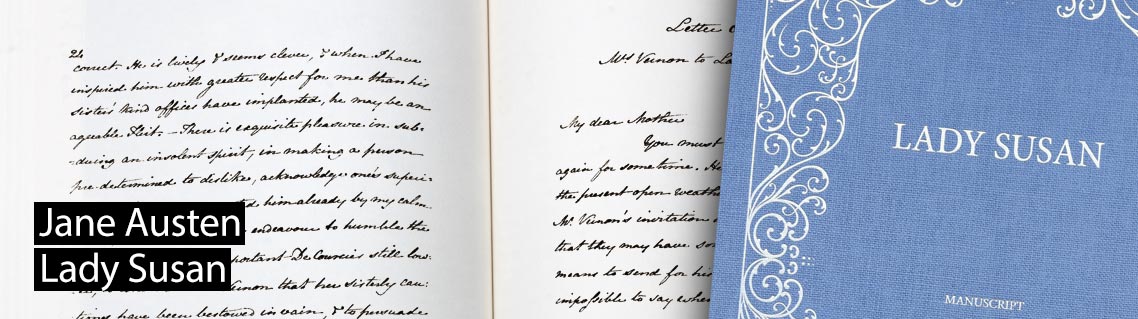 24
correct. He is lively & seems clever, & when I have
inspired him with greater respect for me than his
sister's kind offices have implanted, he may be an
agreable Flirt. – There is exquisite pleasure in sub:
-duing an insolent spirit, in making a person
pre-determined to dislike, acknowledge one's superi-
him already by my calm
endeavour to humble the
De Courcies still low-
that her sisterly cau:
times have been bestowed in vain, & to persuade
Letter
Mrs Vernon to
My dear Mother
You must
again for some time.
the present open
Mr. Vernon's invitation
that they may have
means to send for his
impossible to say
LADY SUSAN
MANUSCRIPT
Jane Austen
Lady Susan